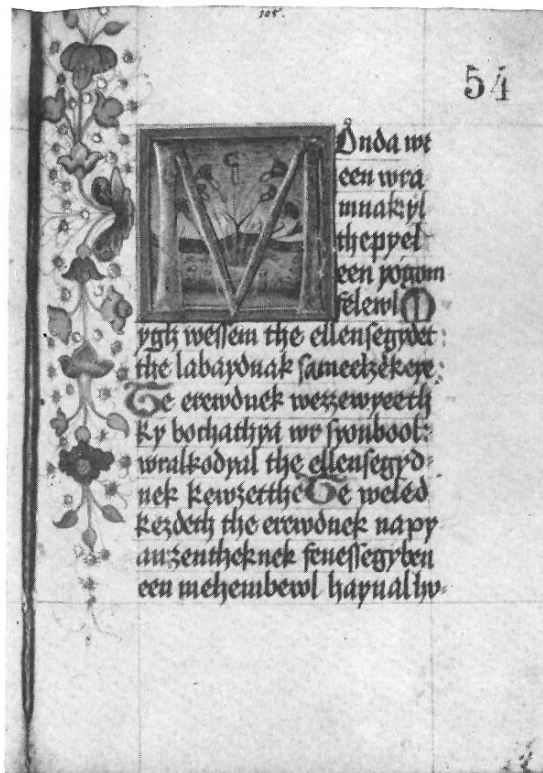 54
MOnda wr
een wra
mnak yl
thepyel
een yogom
felewl M
ygh wessem the ellensegydet:
the labaydnak sameelzekere:
Te erewdnek wezzewyeeth
ky bochathya wr syonbool:
wralkodyal the ellensegyd-
nek kewzetthe Te weled
kezdeth the erewdnek napy
an zentheknek fenessegyben
een mehembewl haynal hw-